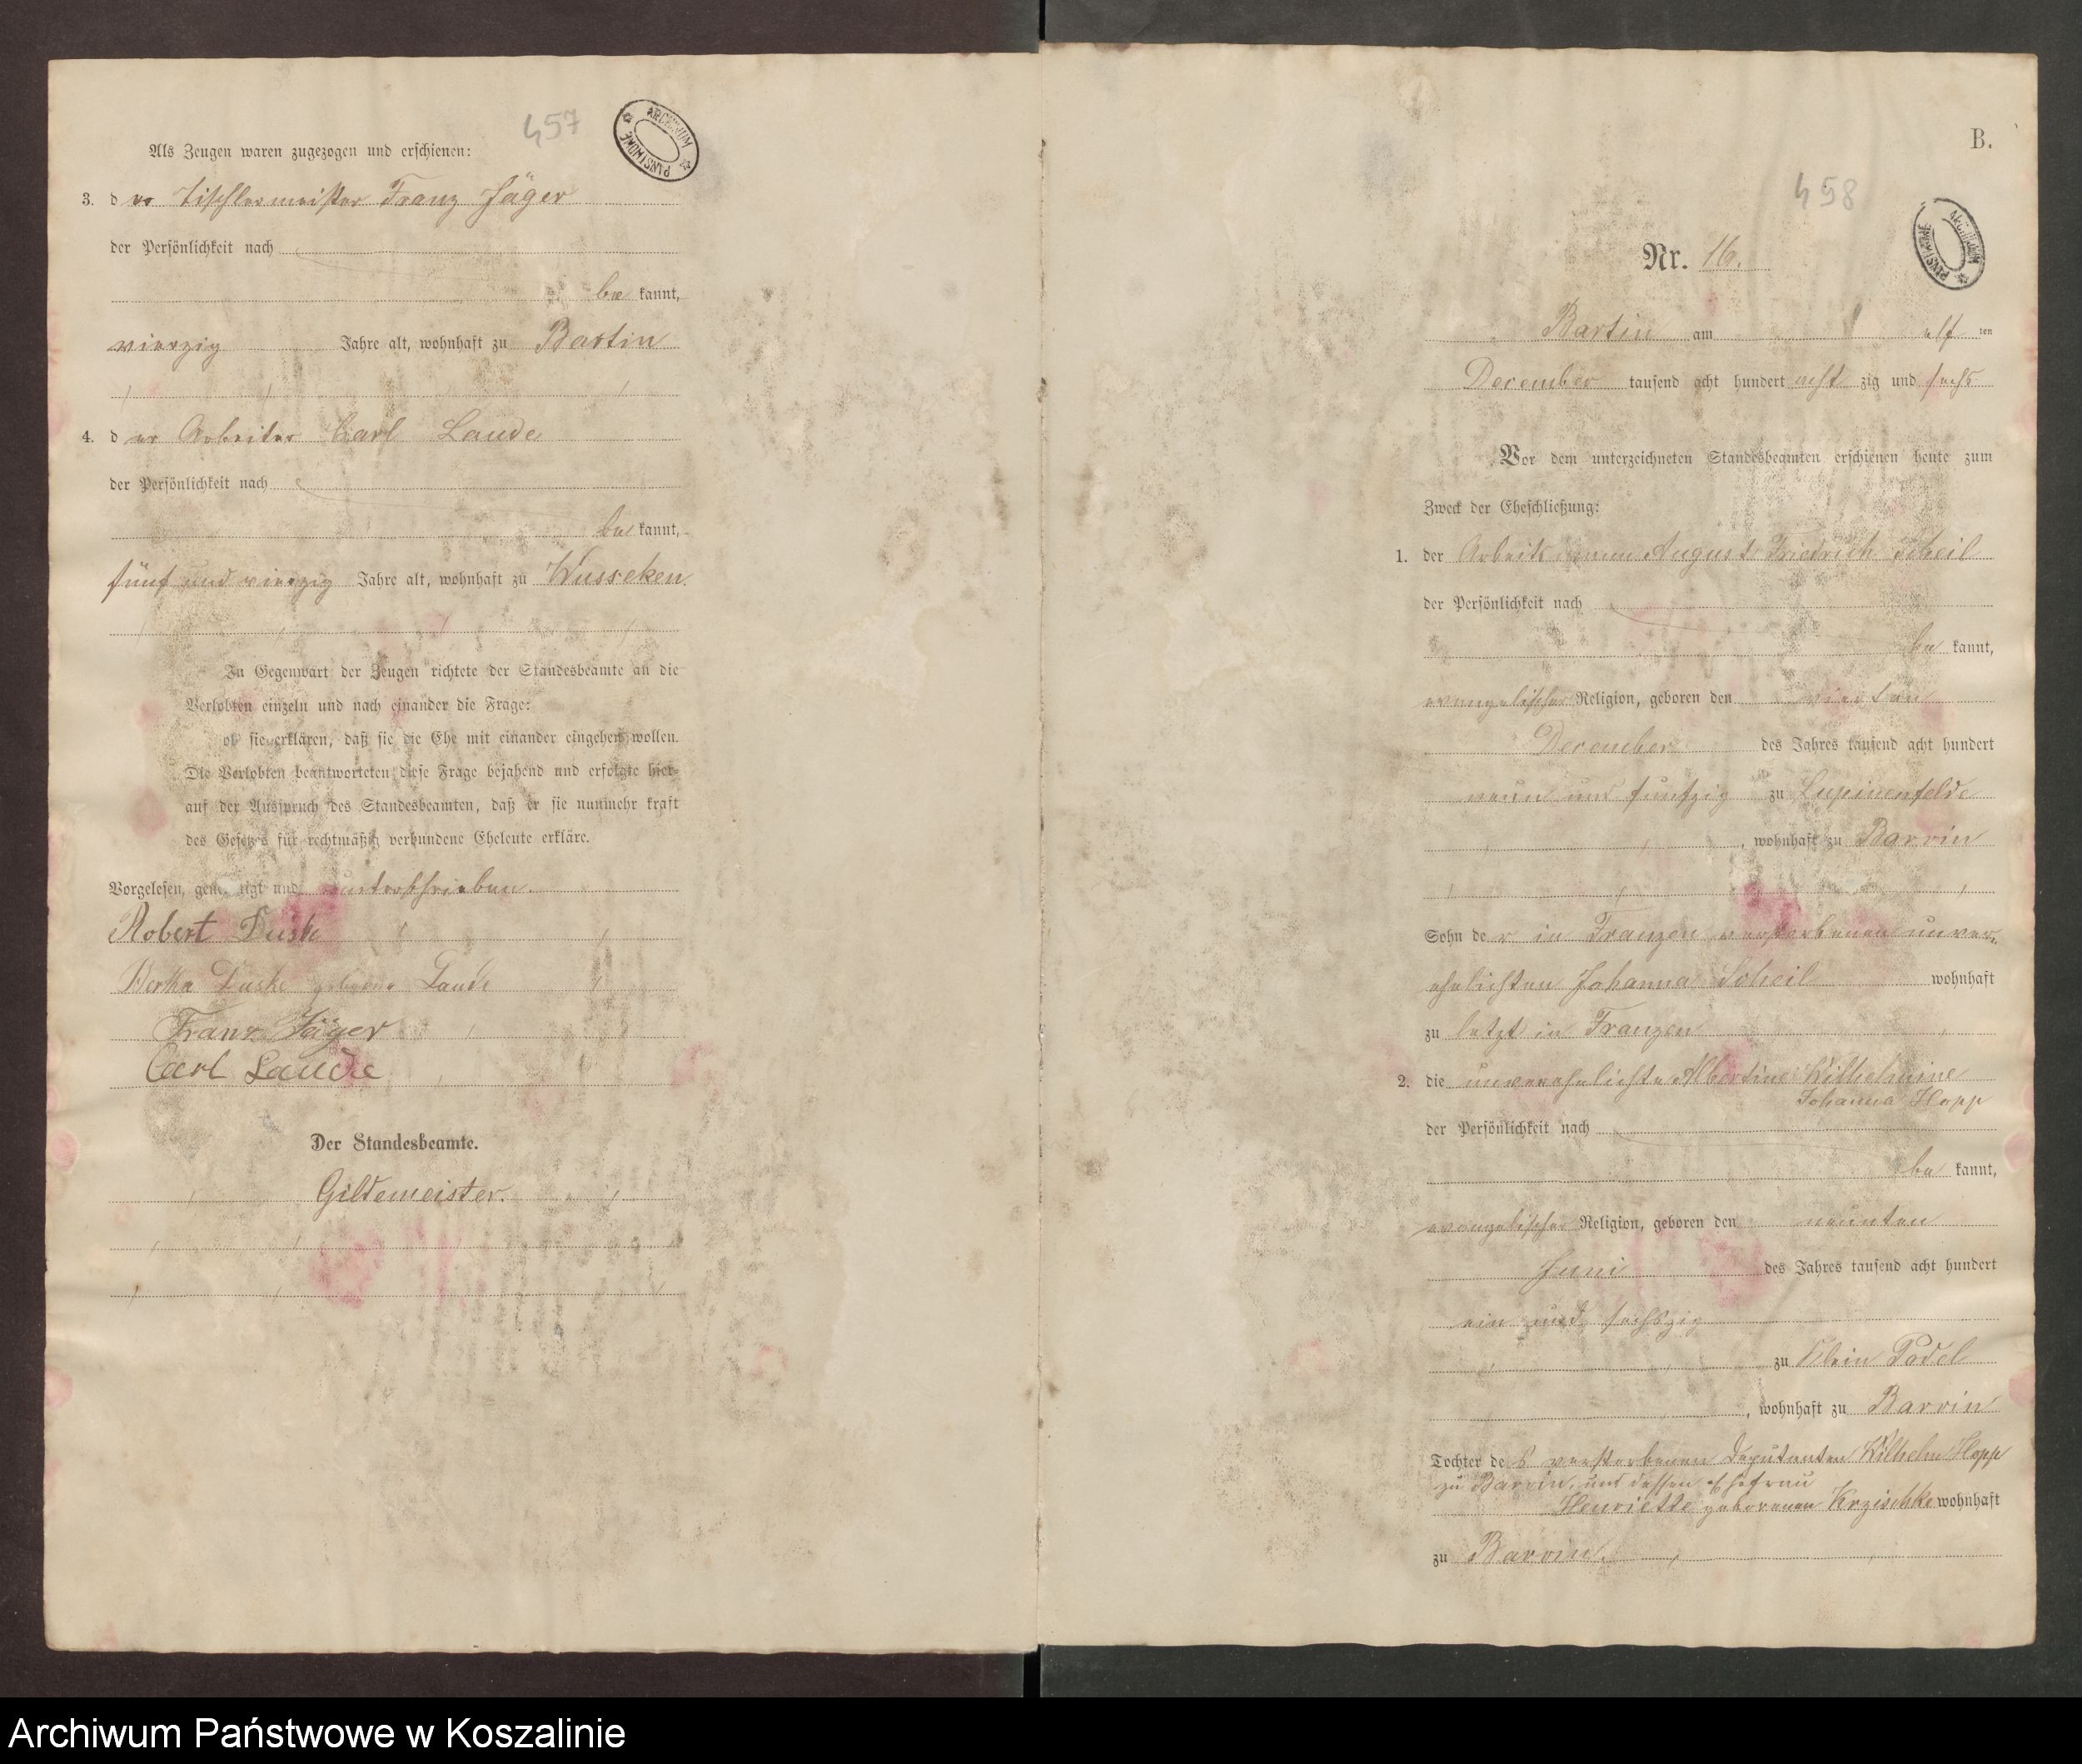 457
ARCHIWUM PAŃSTWOWE
Als Zeugen waren zugezogen und erschienen:
3. der Tischlermeister Franz Jäger
der Persönlichkeit nach
be kannt,
vierzig Jahre alt, wohnhaft zu Bartin
4. der Arbeiter Carl Laude
der Persönlichkeit nach
be kannt,
fünf und vierzig Jahre alt, wohnhaft zu Wusseken.
In Gegenwart der Zeugen richtete der Standesbeamte an die
Verlobten einzeln und nach einander die Frage:
ob sie erklären, daß sie die Ehe mit einander eingehen wollen.
Die Verlobten beantworteten diese Frage bejahend und erfolgte hier-
auf der Ausspruch des Standesbeamten, daß er sie nunmehr kraft
des Gesetzes für rechtmäßig verbundene Eheleute erkläre.
Vorgelesen, genehmigt und unterschrieben.
Robert Duske
Bertha Duske geborene Laude
Franz Jäger
Carl Laude
Der Standesbeamte.
Gildemeister.
B.
458
ARCHIWUM PAŃSTWOWE
Nr. 16.
Bartin am elf ten
December tausend acht hundert acht zig und sechs
Vor dem unterzeichneten Standesbeamten erschienen heute zum
Zweck der Eheschließung:
1. der Arbeitsmann August Friedrich Scheil
der Persönlichkeit nach
be kannt,
evangelischer Religion, geboren den vierten
December des Jahres tausend acht hundert
neun und funfzig zu Lupinenfelde
, wohnhaft zu Barvin
Sohn der in Franzen verstorbenen unver-
ehelichten Johanna Scheil wohnhaft
zu letzt in Franzen
2. die unverehelichte Albertine Wilhelmine
Johanna Hopp
der Persönlichkeit nach
be kannt,
evangelischer Religion, geboren den neunten
Juni des Jahres tausend acht hundert
ein und sechszig
zu Klein Podel
, wohnhaft zu Barvin
Tochter des verstorbenen Deputanten Wilhelm Hopp
zu Barvin, und dessen Ehefrau
Henriette geborenen Krzischke wohnhaft
zu Barvin.
Archiwum Państwowe w Koszalinie